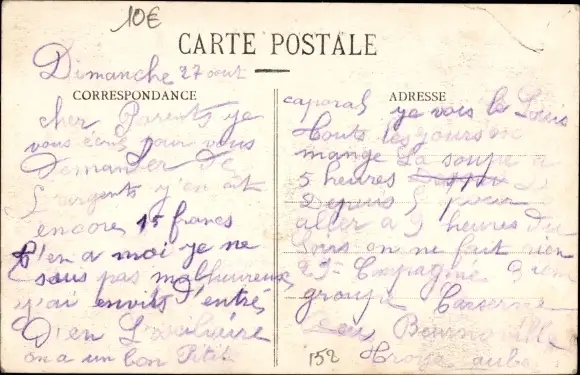 10€
CARTE POSTALE
Dimanche 27 aout
CORRESPONDANCE
cher Parents je
vous écris pour vous
Demander De
L'argents j'en ait
encore 15 francs
a moi je ne
suis pas malheureux
j'ai envits d'entré
D'en
on a un bon Petit
ADRESSE
caporal je vois le Louis
touts les jours on
mange La soupe a
5 heures
Depuis 5 pour
aller a 9 heures du
soirs on ne fait rien
29e Compagnie 3 iem
groupe Caserne
Beurnonville
Troye aube
152